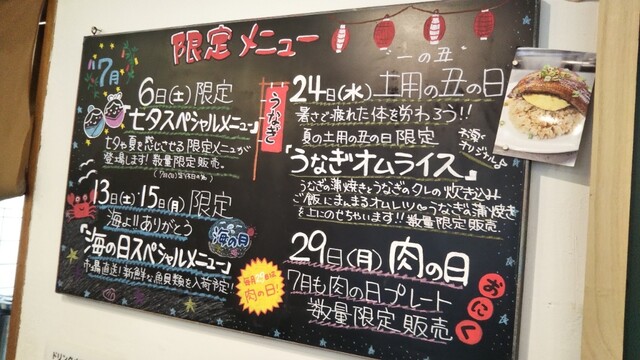 限定メニュー
7月
6日(土)限定
「七夕スペシャルメニュー」
七夕や夏を感じさせる限定メニューが
登場します!数量限定販売。
13日(土)・15日(月)限定
海よ!!ありがとう
海の日
「海の日スペシャルメニュー」
市場直送!新鮮な魚貝類を入荷予定!!
毎月29日は
肉の日!
うなぎ
"一の丑"
24日(水)土用の丑の日
暑さで疲れた体を労わろう!!
夏の土用の丑の日限定
お家でオリジナル♪
「うなぎオムライス」
うなぎの蒲焼きとうなぎのタレの炊き込み
ご飯にまんまるオムレツ〜うなぎの蒲焼き
を上にのせちゃいます!!数量限定販売
29日(月)肉の日
7月も肉の日プレート
数量限定販売
おにく